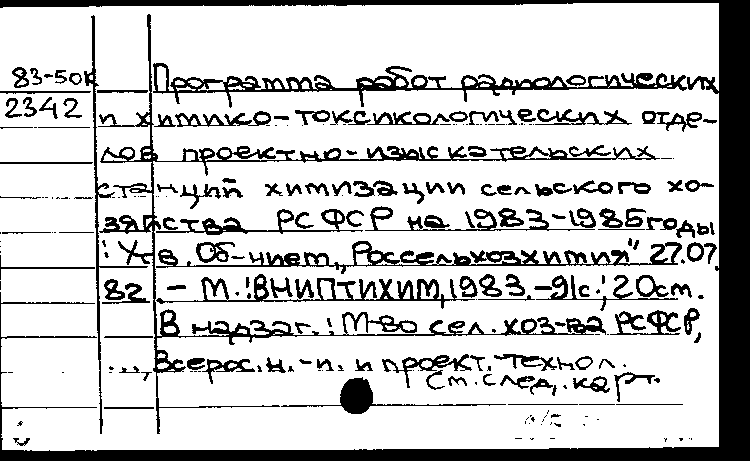 83-50к Программа работ радиологических
2342 и химико-токсикологических отде-
лов проектно-изыскательских
станций химизации сельского хо-
зяйства РСФСР на 1983-1985 годы
: Утв. Об-нием „Россельхозхимия" 27.07.
82. - М.: ВНИПТИХИМ, 1983. - 91с.; 20см.
В надзаг.: М-во сел. хоз-ва РСФСР,
..., Всерос. н.-и. и проект.-технол.
См. след. карт.